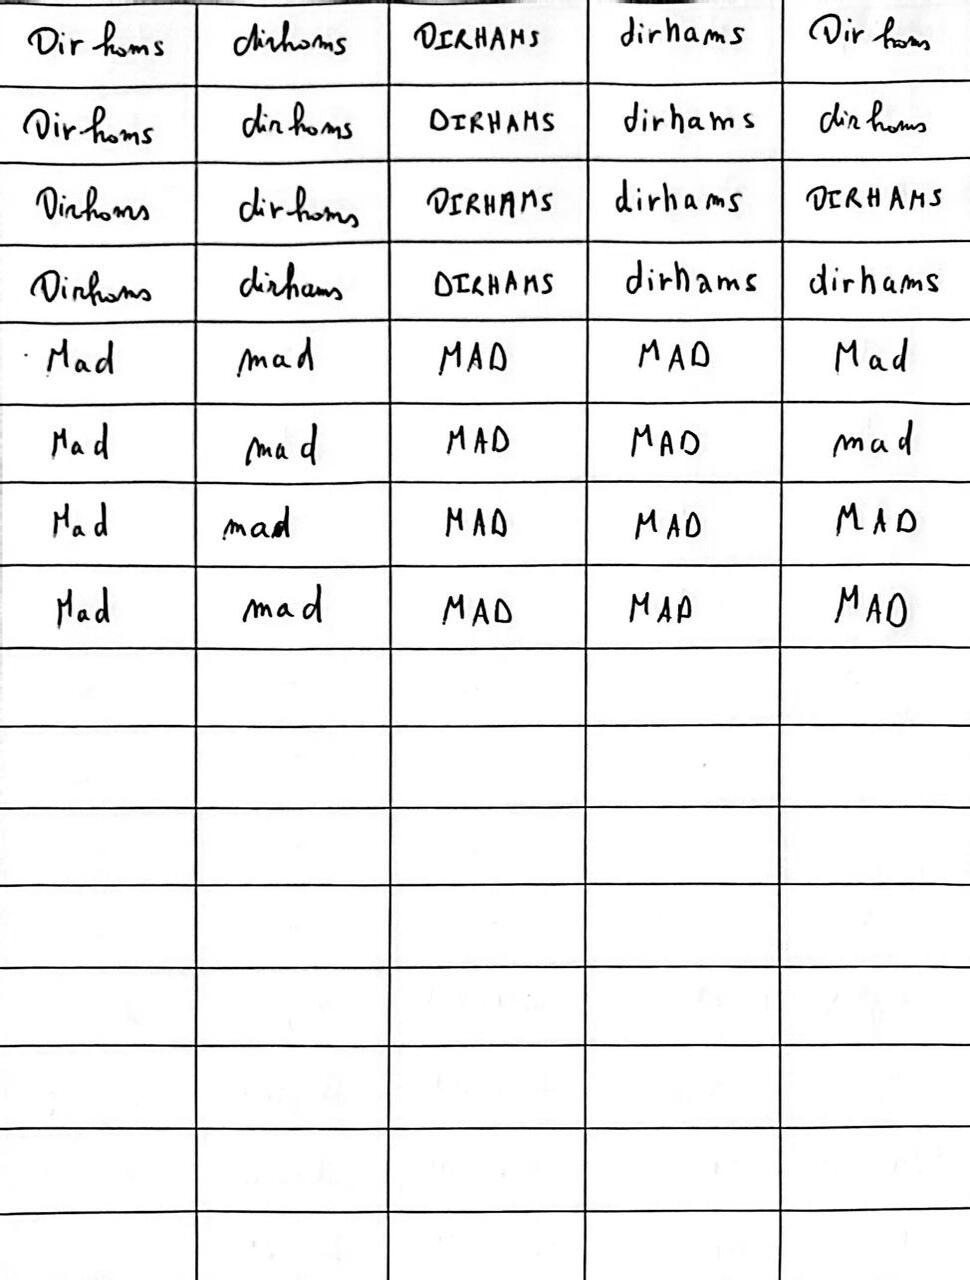 Dirhams dirhams DIRHAMS dirhams Dirhams
Dirhams dirhams DIRHAMS dirhams dirhams
Dirhams dirhams DIRHAMS dirhams DIRHAMS
Dirhams dirhams DIRHAMS dirhams dirhams
Mad mad MAD MAD Mad
Mad mad MAD MAD mad
Mad mad MAD MAD MAD
Mad mad MAD MAD MAD